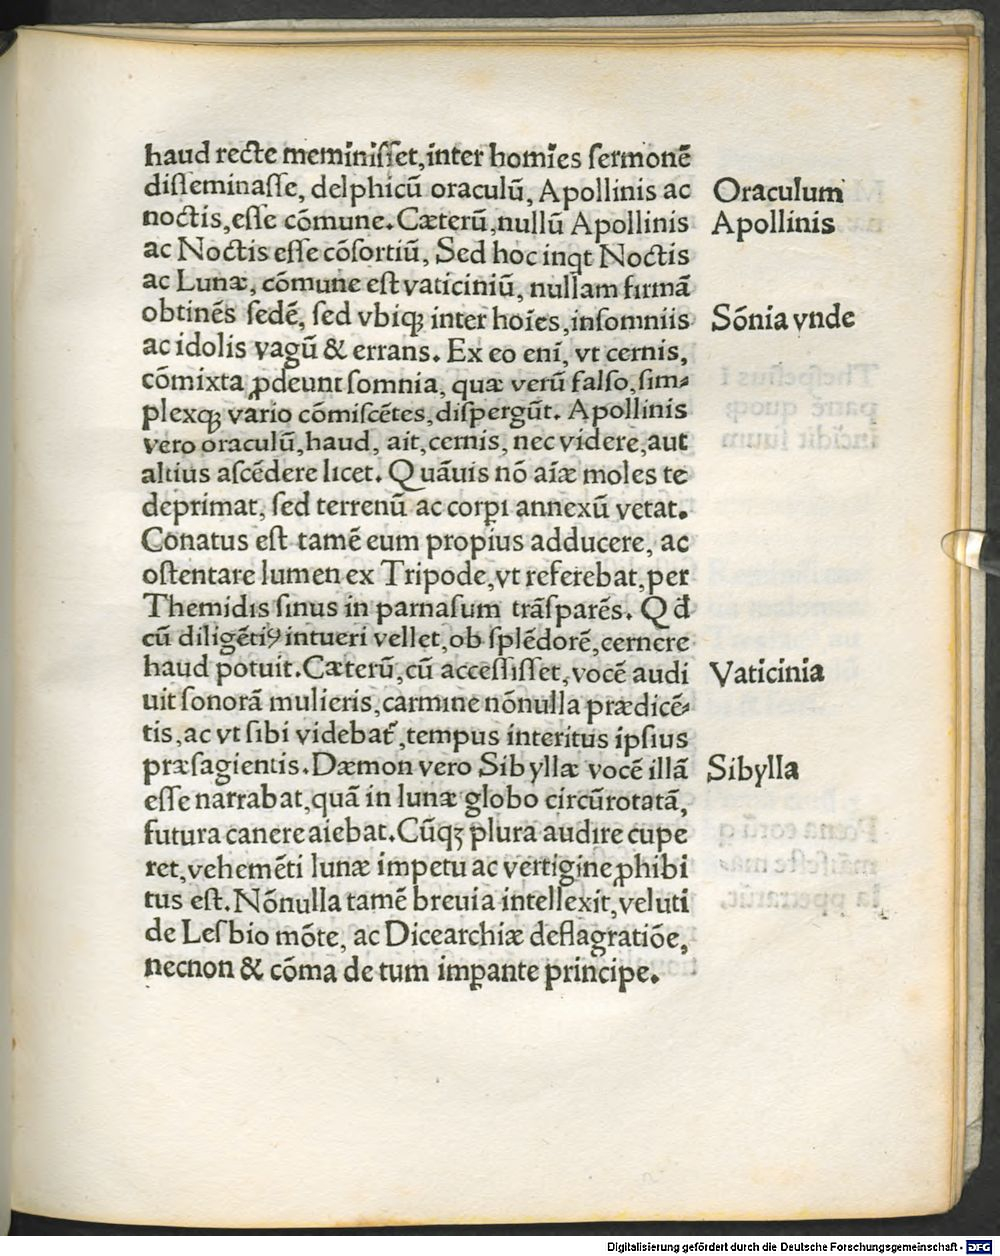 haud recte meminiſſet,inter homīes ſermonē
diſſeminaſſe, delphicū oraculū, Apollinis ac
Oraculum
noctis,eſſe cōmune. Cæterū,nullū Apollinis
Apollinis
ac Noctis eſſe cōſortiū, Sed hoc inqt Noctis
ac Lunæ, cōmune eſt vaticiniū, nullam firmā
obtinēs ſedē, ſed vbiqꝫ inter hoīes,inſomniis
Sōnia vnde
ac idolis vagū & errans. Ex eo enī, vt cernis,
cōmixta ꝓdeunt ſomnia, quæ verū falſo,ſim-
plexqꝫ vario cōmiſcētes,diſpergūt. Apollinis
vero oraculū,haud, ait,cernis, nec videre,aut
altius aſcēdere licet. Quāuis nō aīæ moles te
deprimat, ſed terrenū ac corꝑi annexū vetat.
Conatus eſt tamē eum propius adducere, ac
oſtentare lumen ex Tripode,vt referebat,per
Themidis ſinus in parnaſum trāſparēs. Qđ
cū diligētiꝰ intueri vellet,ob ſplēdorē,cernere
haud potuit.Cæterū,cū acceſſiſſet,vocē audi
Vaticinia
uit ſonorā mulieris,carmine nōnulla prædicē-
tis,ac vt ſibi videbat᷑,tempus interitus ipſius
præſagientis.Dæmon vero Sibyllæ vocē illā
Sibylla
eſſe narrabat,quā in lunæ globo circūrotatā,
futura canere aiebat.Cūqꝫ plura audire cupe
ret,vehemēti lunæ impetu ac vertigine ꝓhibi
tus eſt.Nōnulla tamē breuia intellexit,veluti
de Leſbio mōte, ac Dicearchiæ deflagratiōe,
necnon & cōma de tum imꝑante principe.
Digitalisierung gefördert durch die Deutsche Forschungsgemeinschaft - DFG